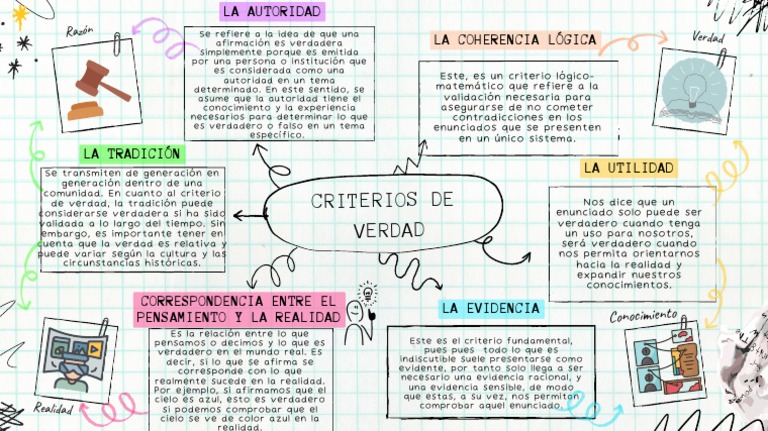 LA AUTORIDAD
Razón
Se refiere a la idea de que una
afirmación es verdadera
simplemente porque es emitida
por una persona o institución que
es considerada como una
autoridad en un tema
determinado. En este sentido, se
asume que la autoridad tiene el
conocimiento y la experiencia
necesarios para determinar lo que
es verdadero o falso en un tema
específico.
LA COHERENCIA LÓGICA
Verdad
Este, es un criterio lógico-
matemático que refiere a la
validación necesaria para
asegurarse de no cometer
contradicciones en los
enunciados que se presenten
en un único sistema.
LA TRADICIÓN
Se transmiten de generación en
generación dentro de una
comunidad. En cuanto al criterio
de verdad, la tradición puede
considerarse verdadera si ha sido
validada a lo largo del tiempo. Sin
embargo, es importante tener en
cuenta que la verdad es relativa y
puede variar según la cultura y las
circunstancias históricas.
CRITERIOS DE
VERDAD
LA UTILIDAD
Nos dice que un
enunciado solo puede ser
verdadero cuando tenga
un uso para nosotros,
será verdadero cuando
nos permita orientarnos
hacia la realidad y
expandir nuestros
conocimientos.
CORRESPONDENCIA ENTRE EL
PENSAMIENTO Y LA REALIDAD
Es la relación entre lo que
pensamos o decimos y lo que es
verdadero en el mundo real. Es
decir, si lo que se afirma se
corresponde con lo que
realmente sucede en la realidad.
Por ejemplo, si afirmamos que el
cielo es azul, esto es verdadero
si podemos comprobar que el
cielo se ve de color azul en la
realidad.
Realidad
LA EVIDENCIA
Este es el criterio fundamental,
pues pues todo lo que es
indiscutible suele presentarse como
evidente, por tanto solo llega a ser
necesario una evidencia racional, y
una evidencia sensible, de modo
que estas, a su vez, nos permitan
comprobar aquel enunciado.
Conocimiento